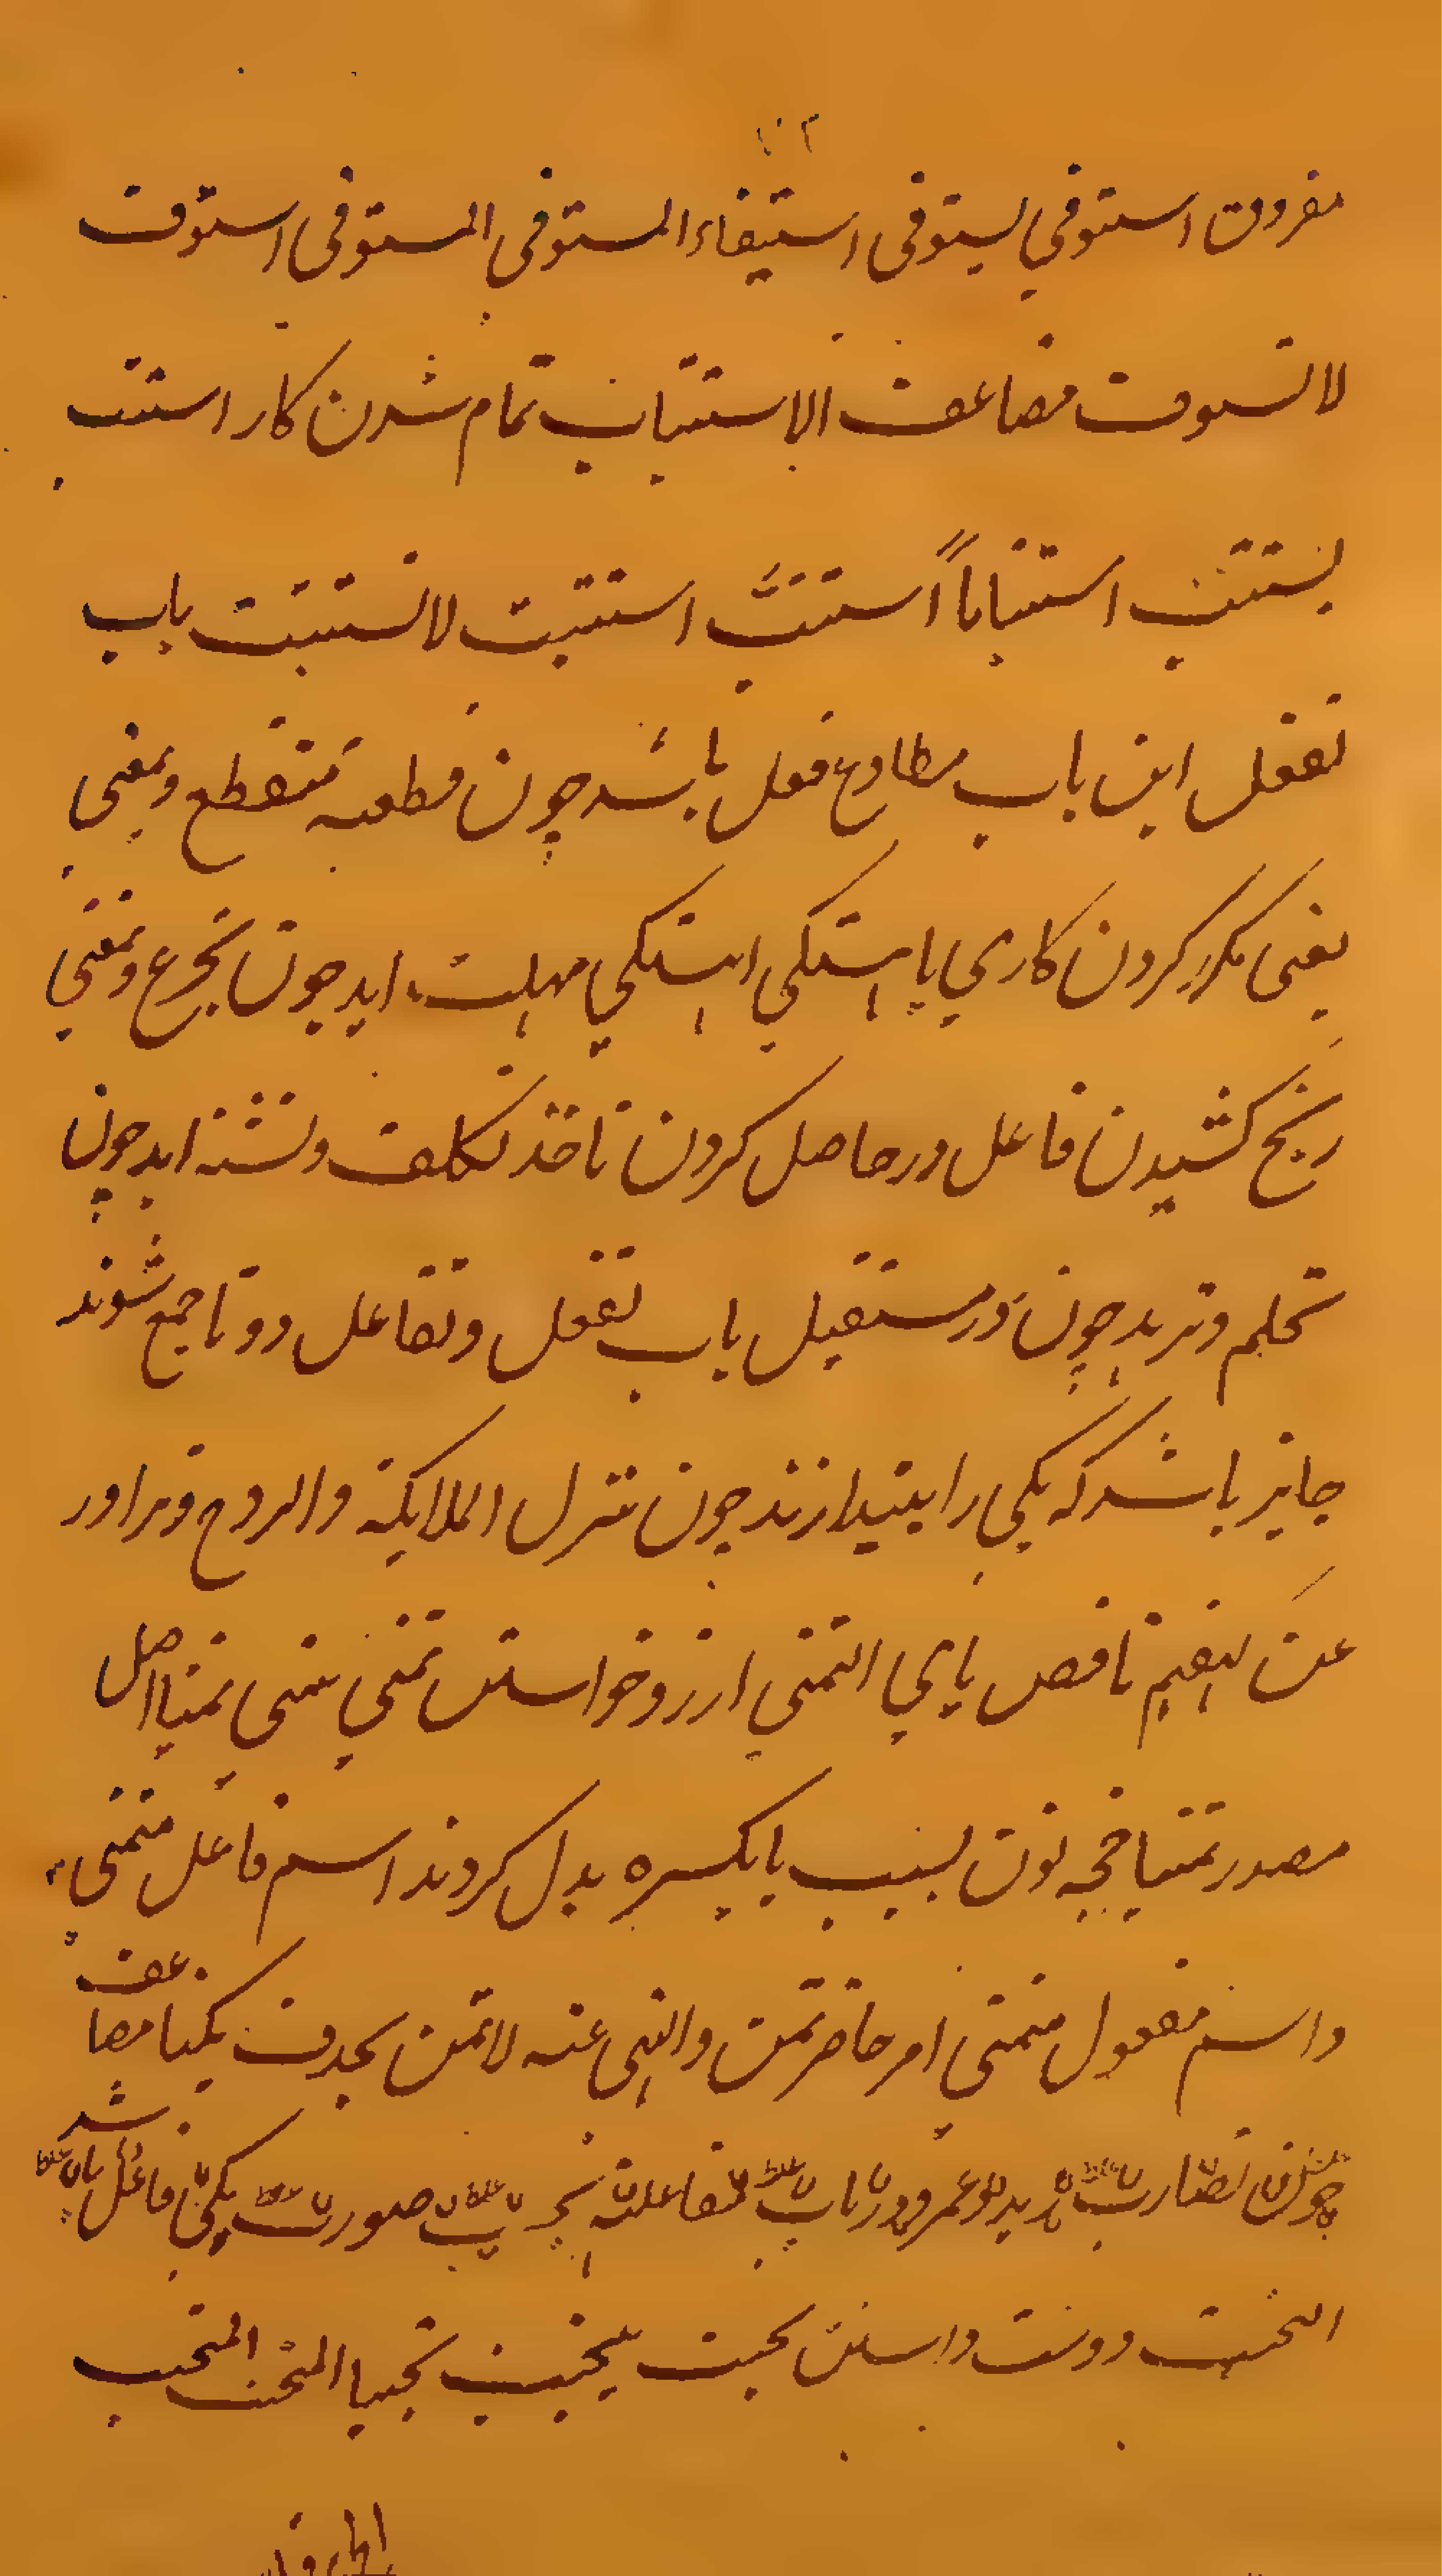 مفروق استوفی یستوفی استیفاء المستوفی المستوفی استوف
لا تستوف مضاعف الاستتباب تمام شدن کار استتب
یستتب استتباباً استتبَّ استتبب لا تستتبب باب
تفعل این باب مطاوع فعل باشد چون قطعته فتقطع و بمعنی
یعنی مکرر کردن کاری باهستکی اهستکی مهلت اید چون تجرع و بمعنی
رنج کشیدن فاعل در حاصل کردن ماخذ تکلف و تشنه اید چون
تحلم و تزهد چون در مستقبل باب تفعل و تفاعل دو تا جمع شوند
جایز باشد که یکی را بیندازند چون تنزل الملایکة والروح و تزاور
عن کهفهم ناقص یایی التمنی ارزو خواستن تمنی یتمنی تمنیا اصل
مصدر تمنیا ضمه نون بسبب یا بکسره بدل کردند اسم فاعل متمنی
و اسم مفعول متمنی امر حاضر تمن والنهی عنه لا تمن بحذف یکتا مضاعف
چون تضارب زید و عمرو و در باب مفاعلة بحسب صورت یکی فاعل باشد
التحبب دوست داشتن تحبب یتحبب تحببا المتحبب المتحبب